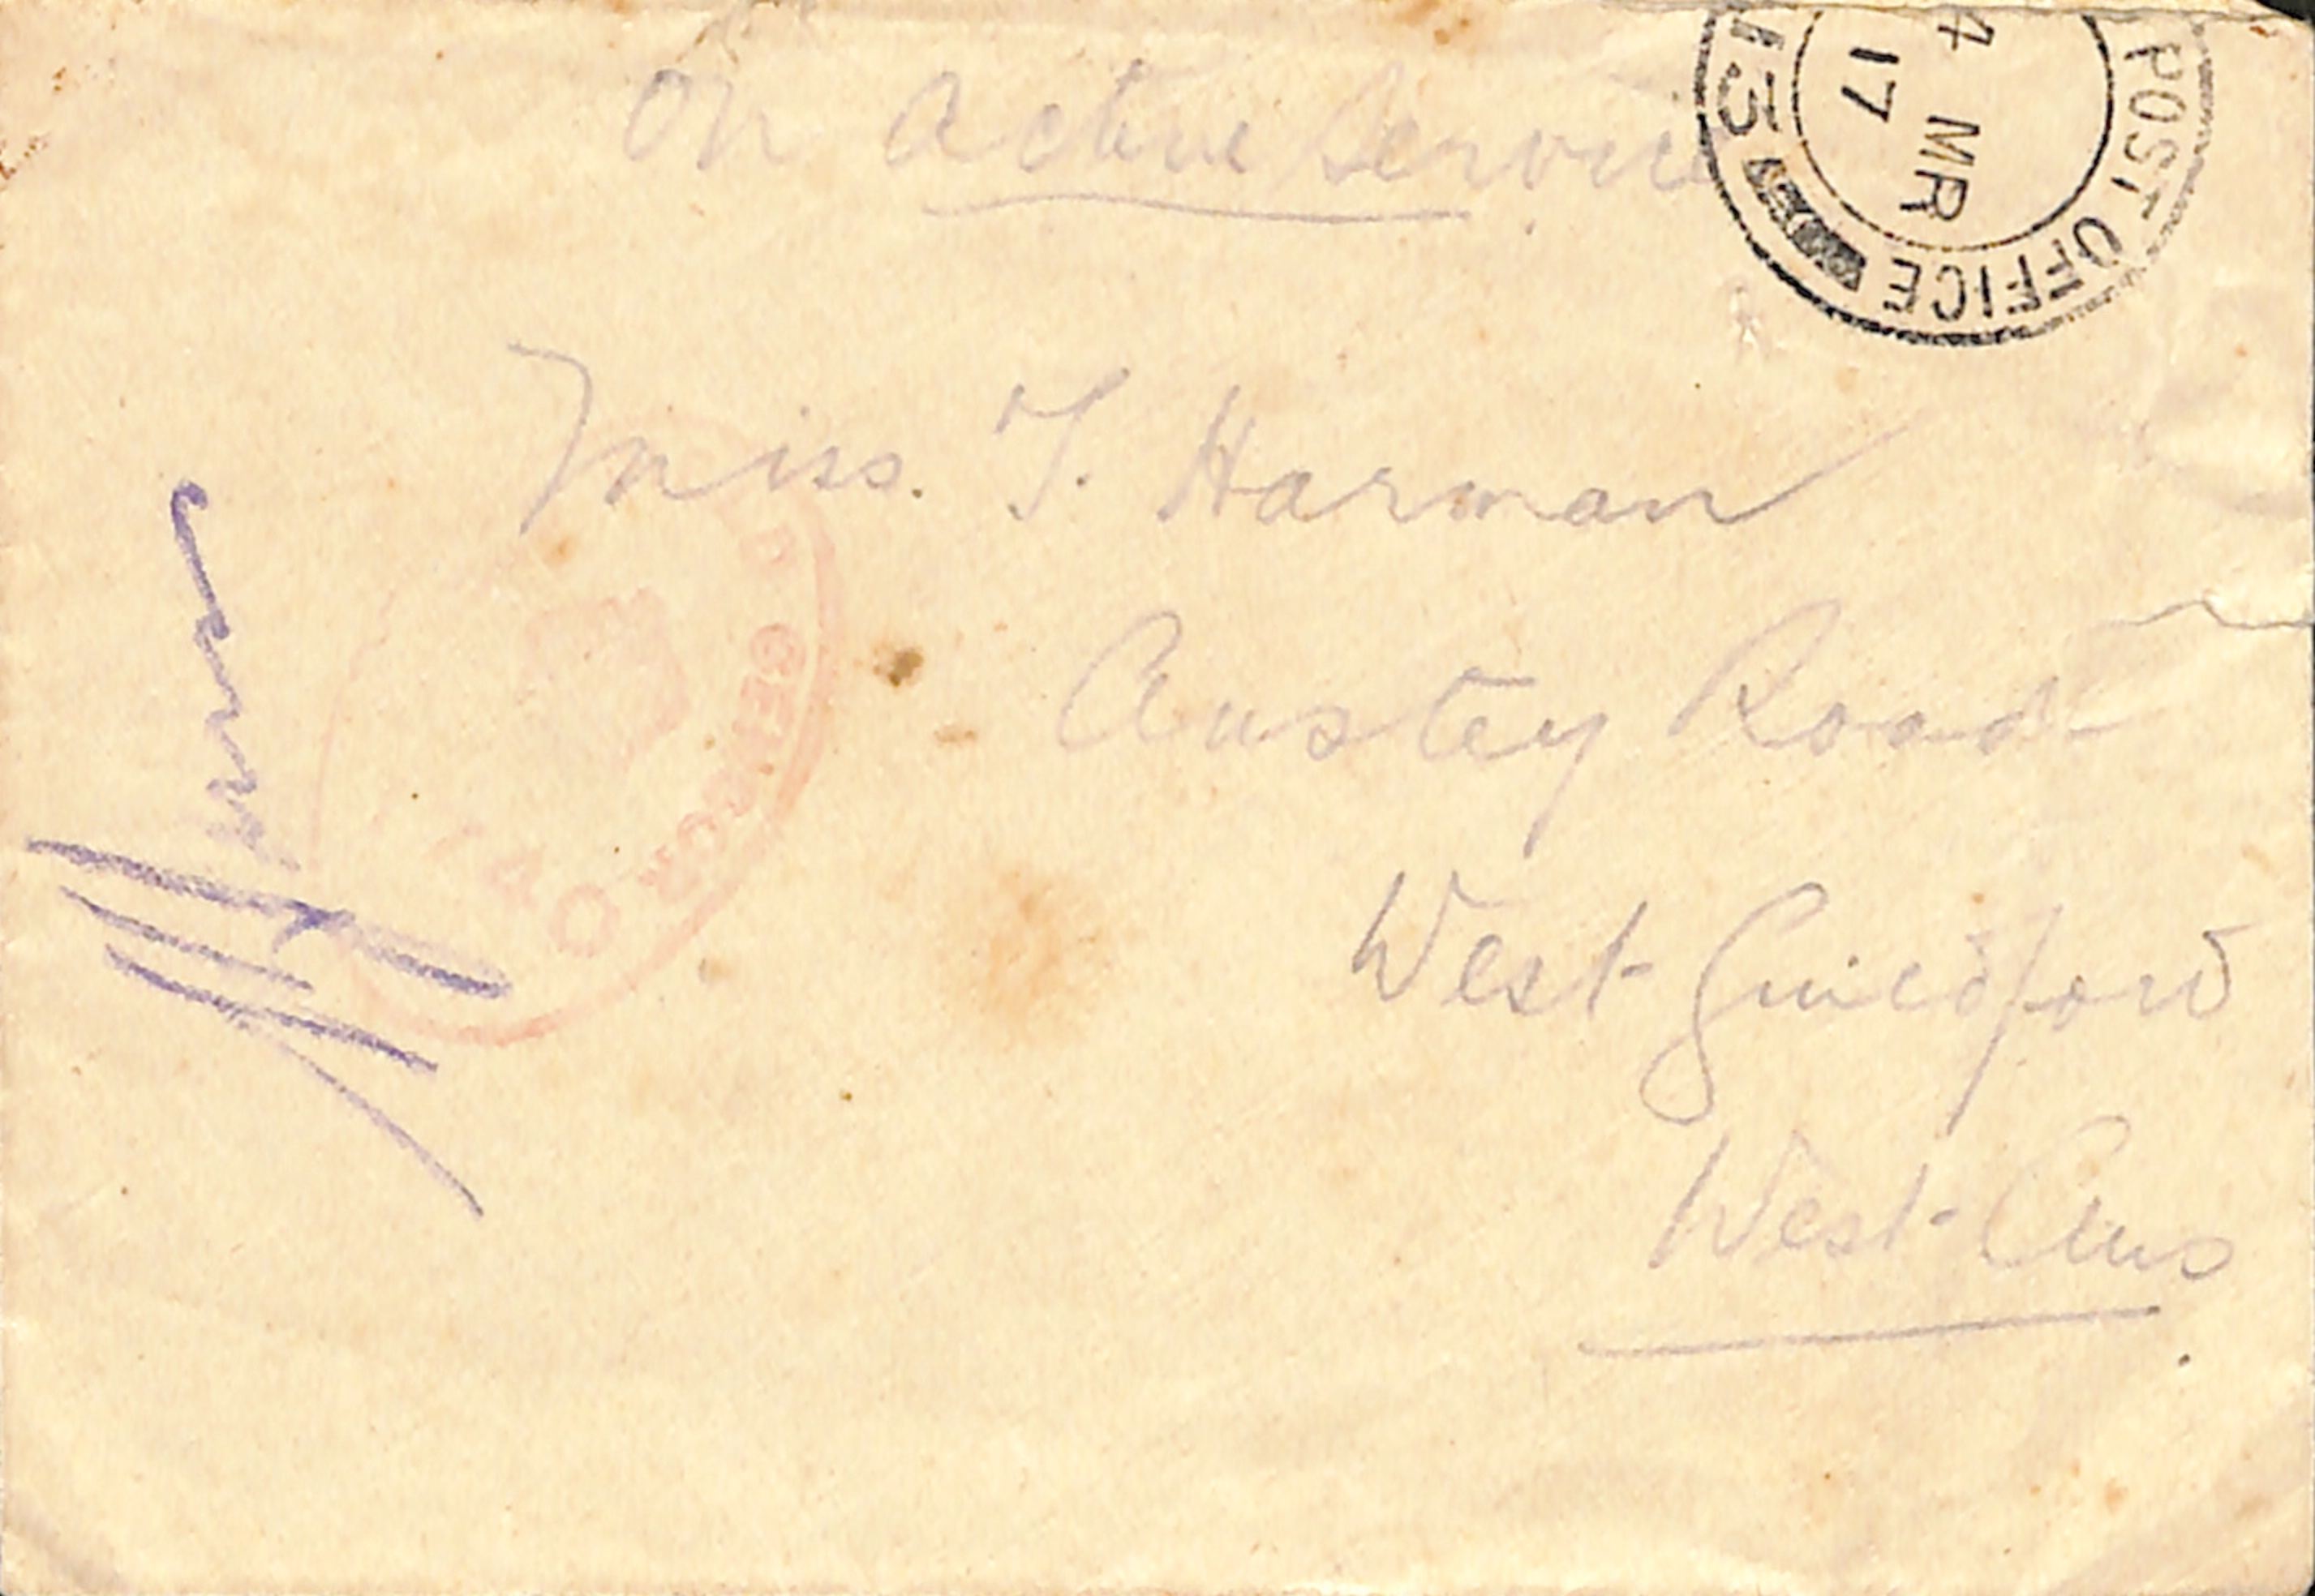 On Active Service
POST OFFICE
4 MR
17
Miss. T. Harman
Anstey Road
West Guildford
West Aus
CENSOR